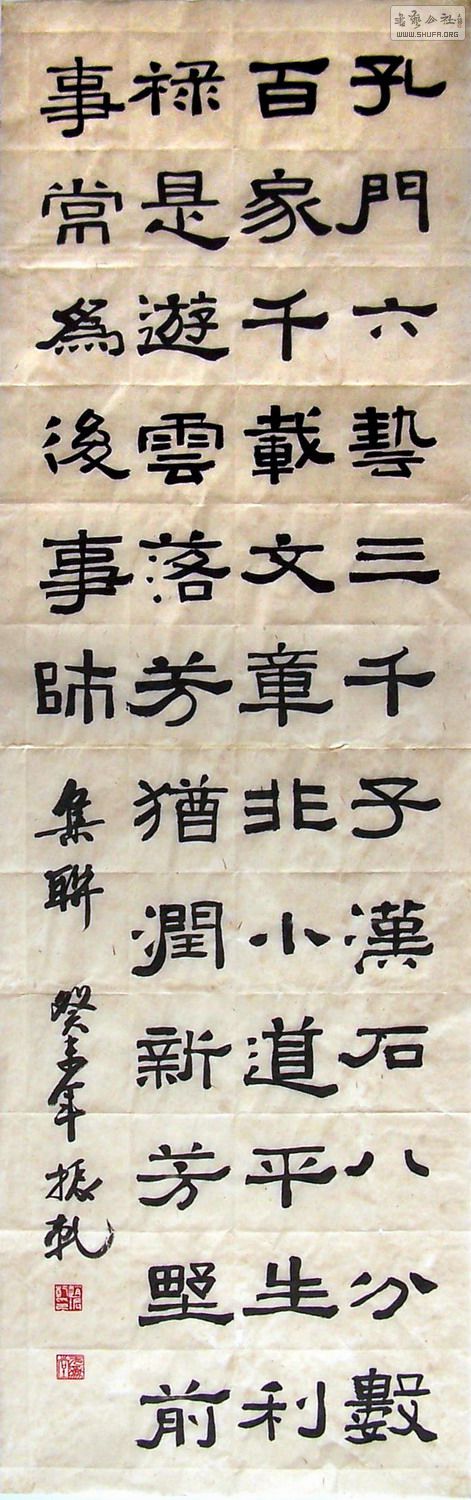 書藝公社
WWW.SHUFA.ORG
孔門六藝三千子漢石八分數
百家千載文章非小道平生利
祿是遊雲落芳猶潤新芳野前
事常為後事師
集聯 癸未年 振乾